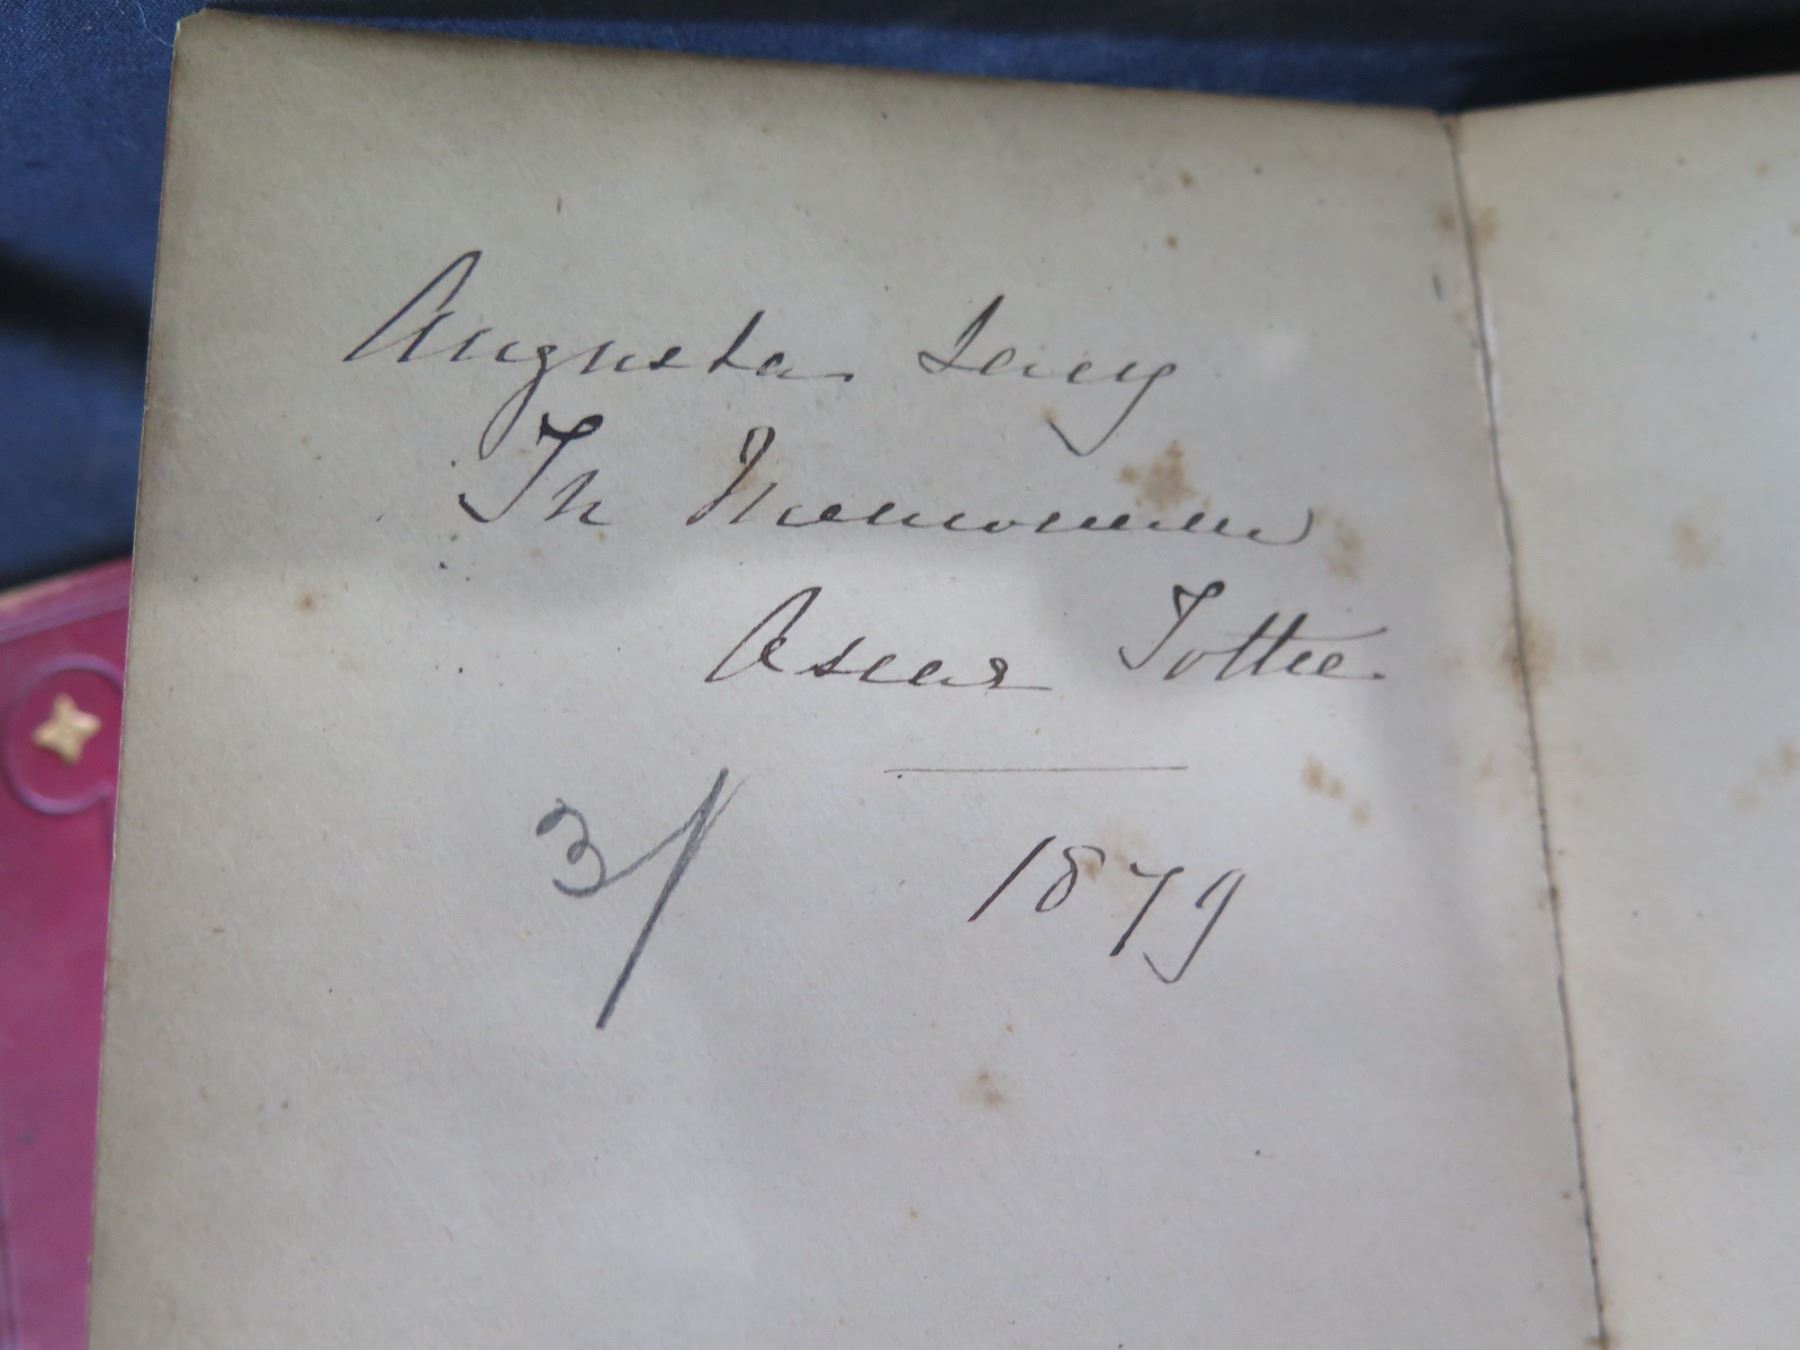 Augusta Lacy
In Memoriam
Oscar Tottie
3/
1879